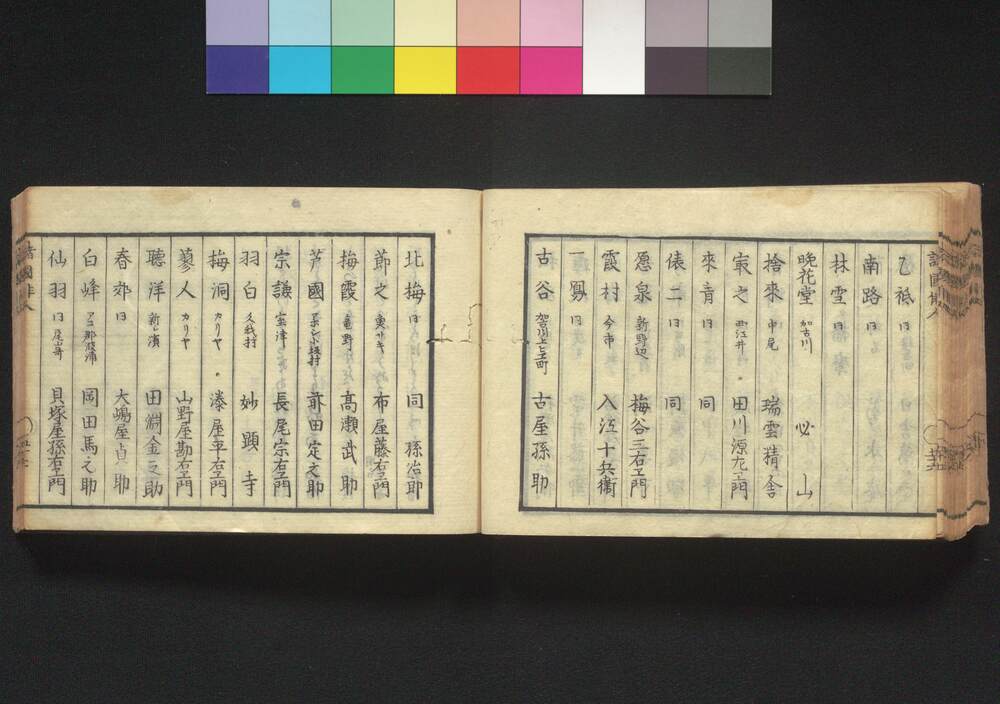 乙祇 同
南路 同
林雪 同
晩花堂 加古川 必山
捨來 中尾 瑞雲精舎
冣之 西江井 田川源左エ門
來青 同 同
俵二 同 同
愿泉 新野辺 梅谷三右エ門
霞村 今市 入江十兵衛
一鳳 同
古谷 加古川上ミ町 古屋孫助
北梅 同 同 孫治郎
節之 魚サキ 布屋藤右エ門
梅霞 竜野 高瀬武助
芦國 小坂村 前田定之助
宗謙 室津 長尾宗右エ門
羽白 久我村 妙顕寺
梅洞 カリヤ 湊屋平右エ門
蓼人 カリヤ 山野屋勘右エ門
聴洋 新濱 田淵金之助
春郊 同 大嶋屋貞助
白峰 アコ那波浦 岡田馬之助
仙羽 同尾崎 貝塚屋孫右エ門
諸國俳人